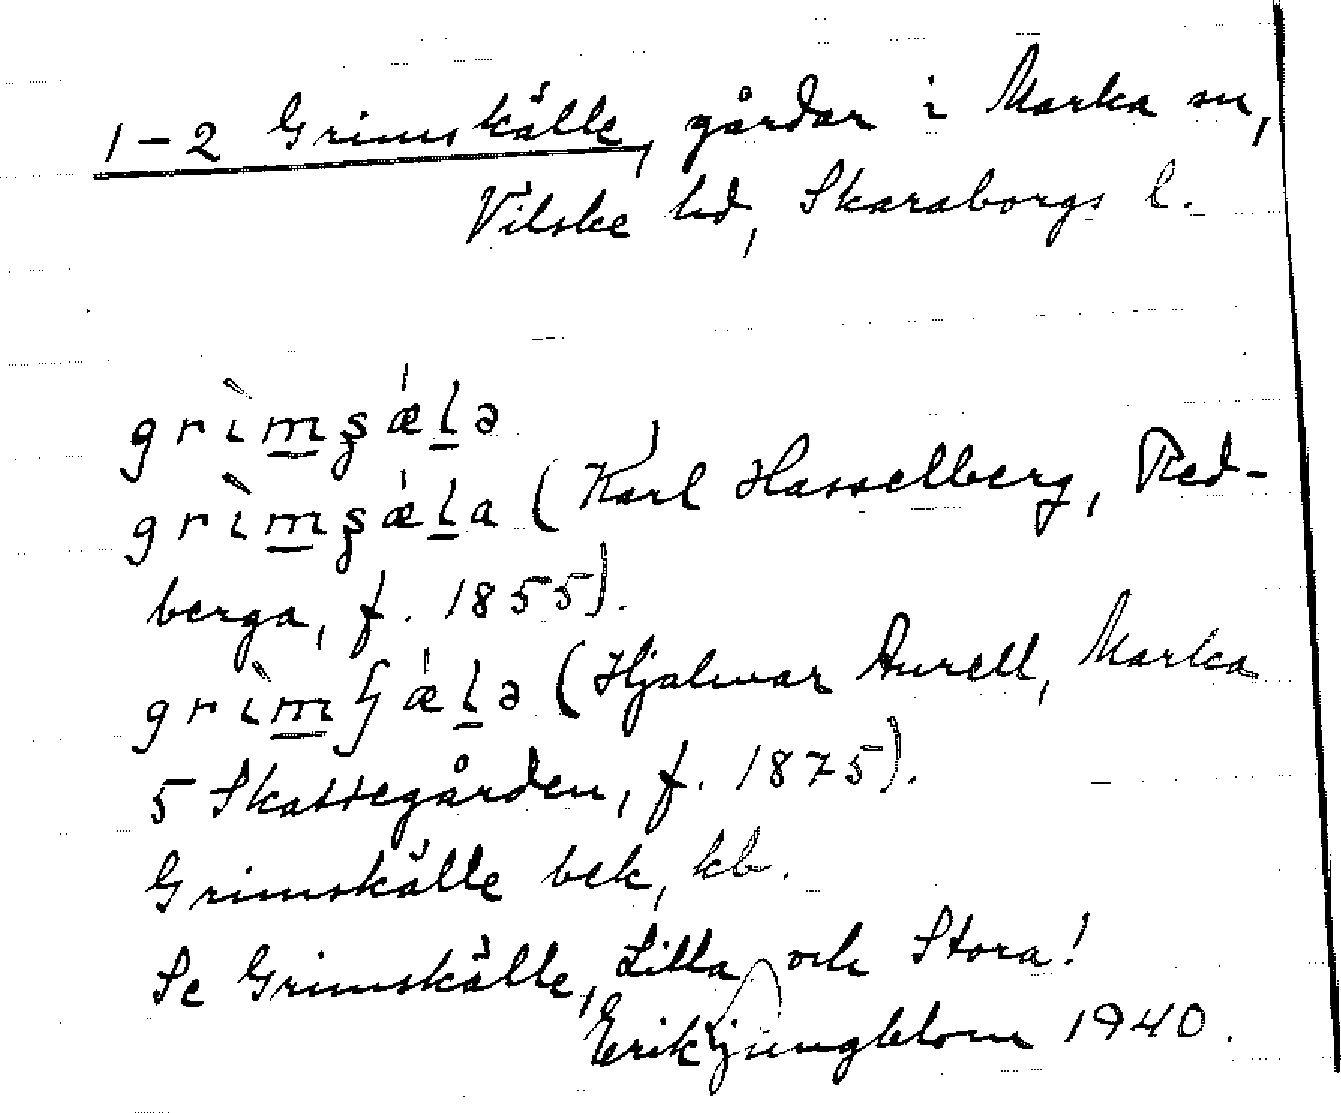 1-2 Grimskälle, gårdar i Marka sn,
Vilske hd, Skaraborgs l.
grìmʂǽlə
grìmʂǽla (Karl Hasselberg, Red-
berga, f. 1855).
grìmʃǽlə (Hjalmar Aurell, Marka
5 Skattegården, f. 1875).
Grimskälle bek, kb.
Se Grimskälle, Lilla och Stora!
Erik Ljungblom 1940.